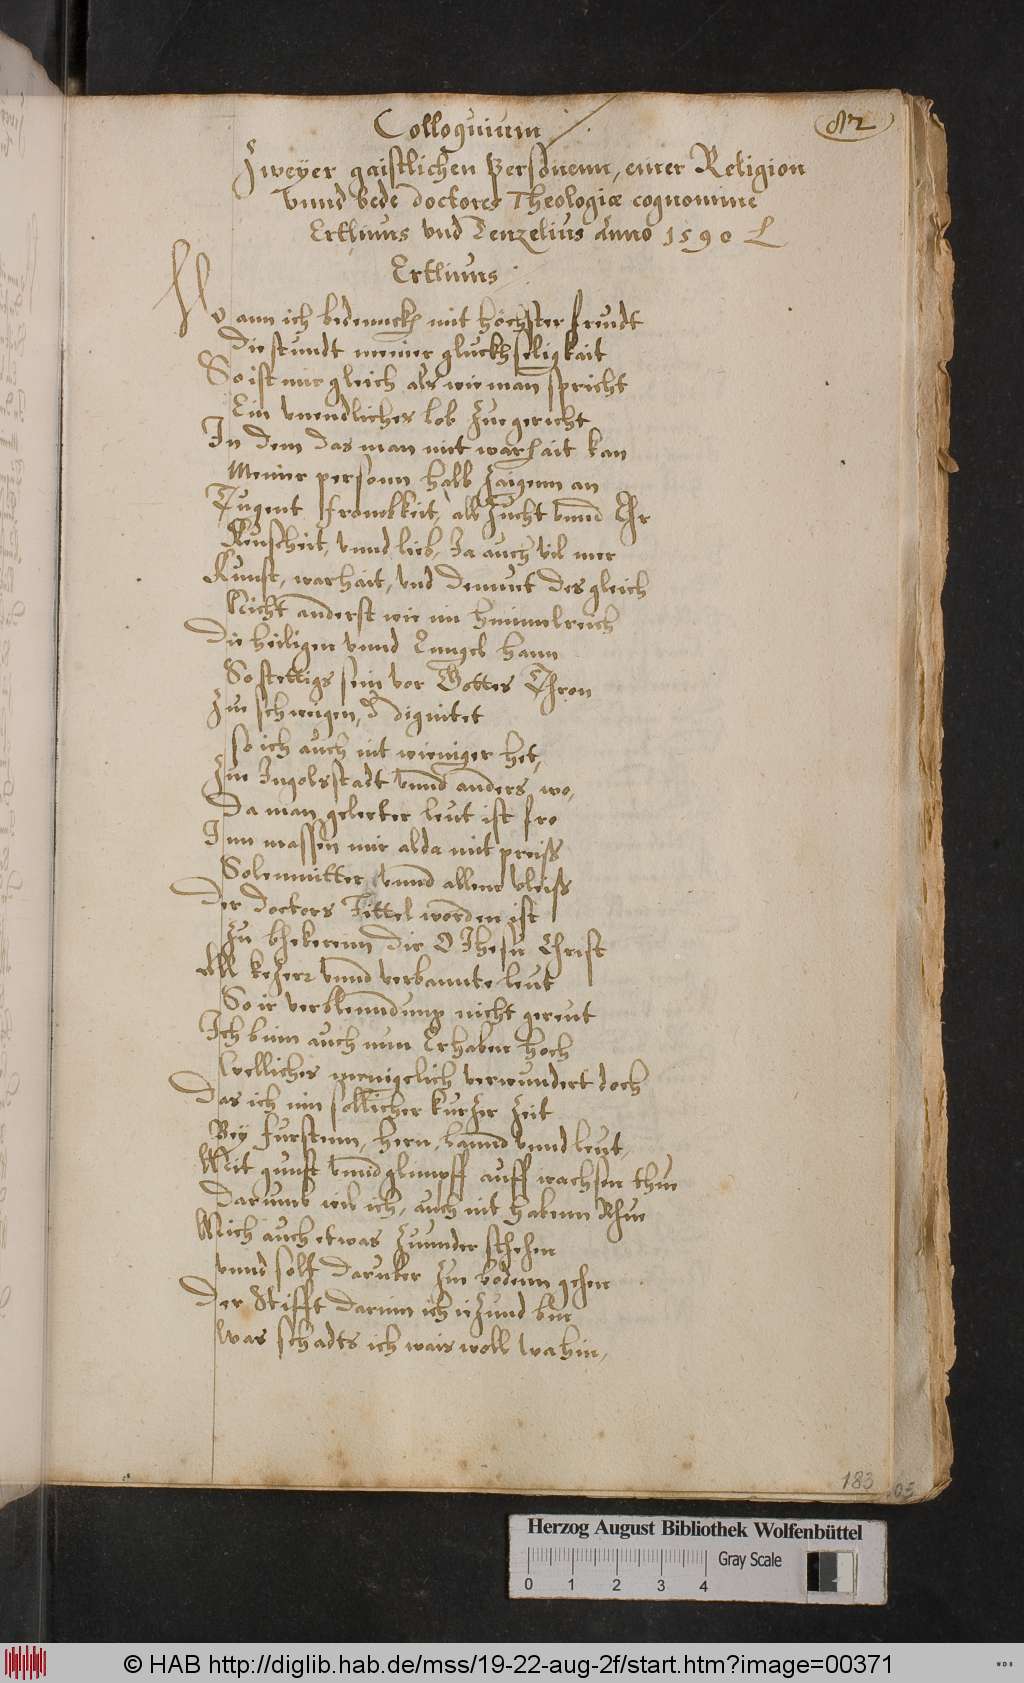 82
Colloquium
Zweyer gaistlichen Personnenn, einer Religion
Vnnd bede doctores Theologiæ cognomine
Ertlinus vnd Tenzelius Anno 1590
Ertlinus
Wann ich bedennckh mit höchster freudt
Die stundt meiner gluckhseligkait
So ist mir gleich als wie man spricht
Ein vnendliches lob zue gericht
In dem das man mit warhait kan
Meiner personn halb zaigenn an
Tugent frombkeit, all zucht vnnd Ehr
Keuscheit, vnnd lieb, Ja auch vil mer
Kunst, warhait, vnd demuet des gleich
Nicht anderst wie im himmelreich
Die heiligen vnnd Enngel hann
So stettigs sein vor Gottes Thron
Zue schweigen, d dignitet
so ich auch nit weniger het,
Zue Ingolstadt vnnd anders wo,
Da man gelerter leut ist fro
Inn massen mir alda mit preiß
Solennitter vnnd allem vleiß
Der doctors Tittel worden ist
Zu bhekerenn die O Jhesu Christ
All kezer vnnd verbannte leut
So ir verblenndung nicht gereut
Ich binn auch nun Erhaben hoch
Welliches menigelich verwundert doch
Das ich inn sollicher kurzer zeit
Bey furstenn, hern, lannd vnnd leut,
Mit gunst vnnd glimpff auff wachsen thue
Darumb wil ich, auch nit habenn Rhue
Mich auch etwas zuunder stehen
vnnd solt daruber zue bodenn gehen
Der Stifft darinn ich iezund bin
Was schadts ich wais woll wahin,
183
03
Herzog August Bibliothek Wolfenbüttel
Gray Scale
0 1 2 3 4
© HAB http://diglib.hab.de/mss/19-22-aug-2f/start.htm?image=00371